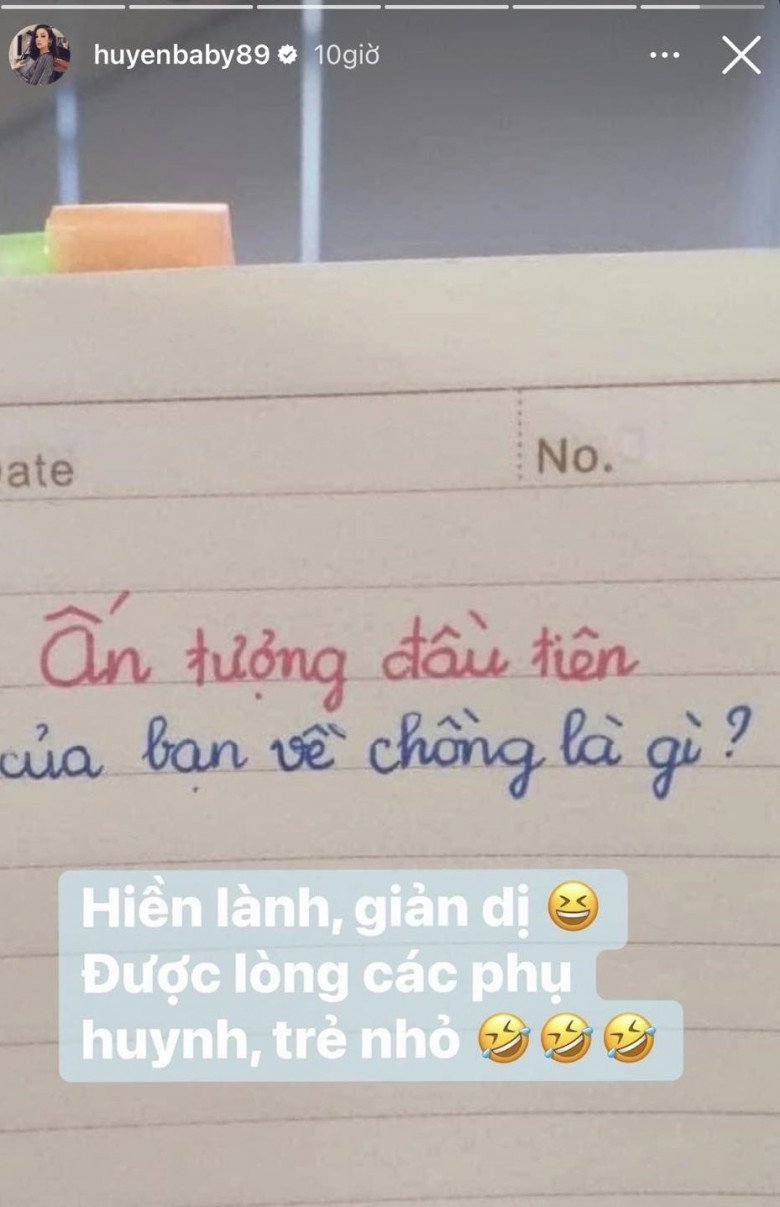 huyenbaby89 10giờ
ate No.
Ấn tượng đầu tiên
của bạn về chồng là gì?
Hiền lành, giản dị 😆
Được lòng các phụ
huynh, trẻ nhỏ 🤣🤣🤣